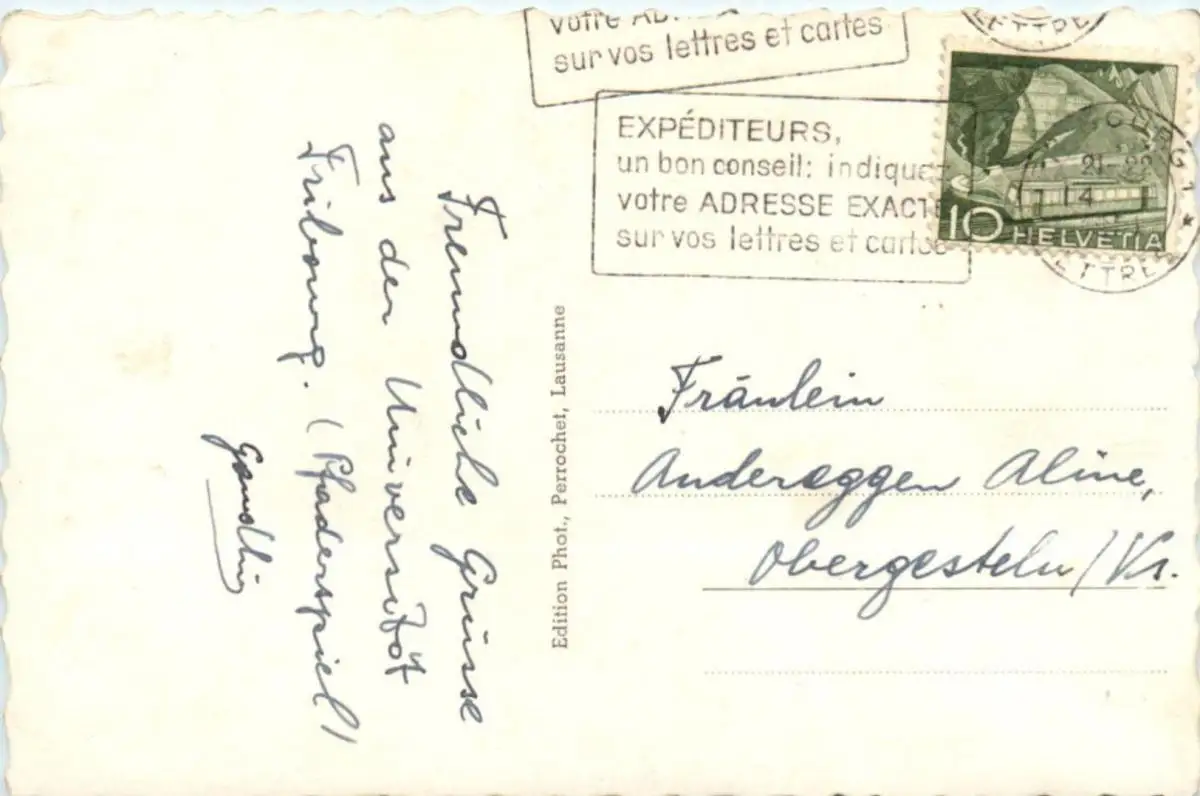 votre
sur vos lettres et cartes
EXPÉDITEURS,
un bon conseil: indiquez
votre ADRESSE EXACTE
sur vos lettres et cartes
10 HELVETIA
21
14
Freundliche Grüsse
aus der Universität
Fribourg. (Pfaderspiel)
Edition Phot., Perrochet, Lausanne
Fräulein
Andereggen Aline,
Obergesteln/Vs.